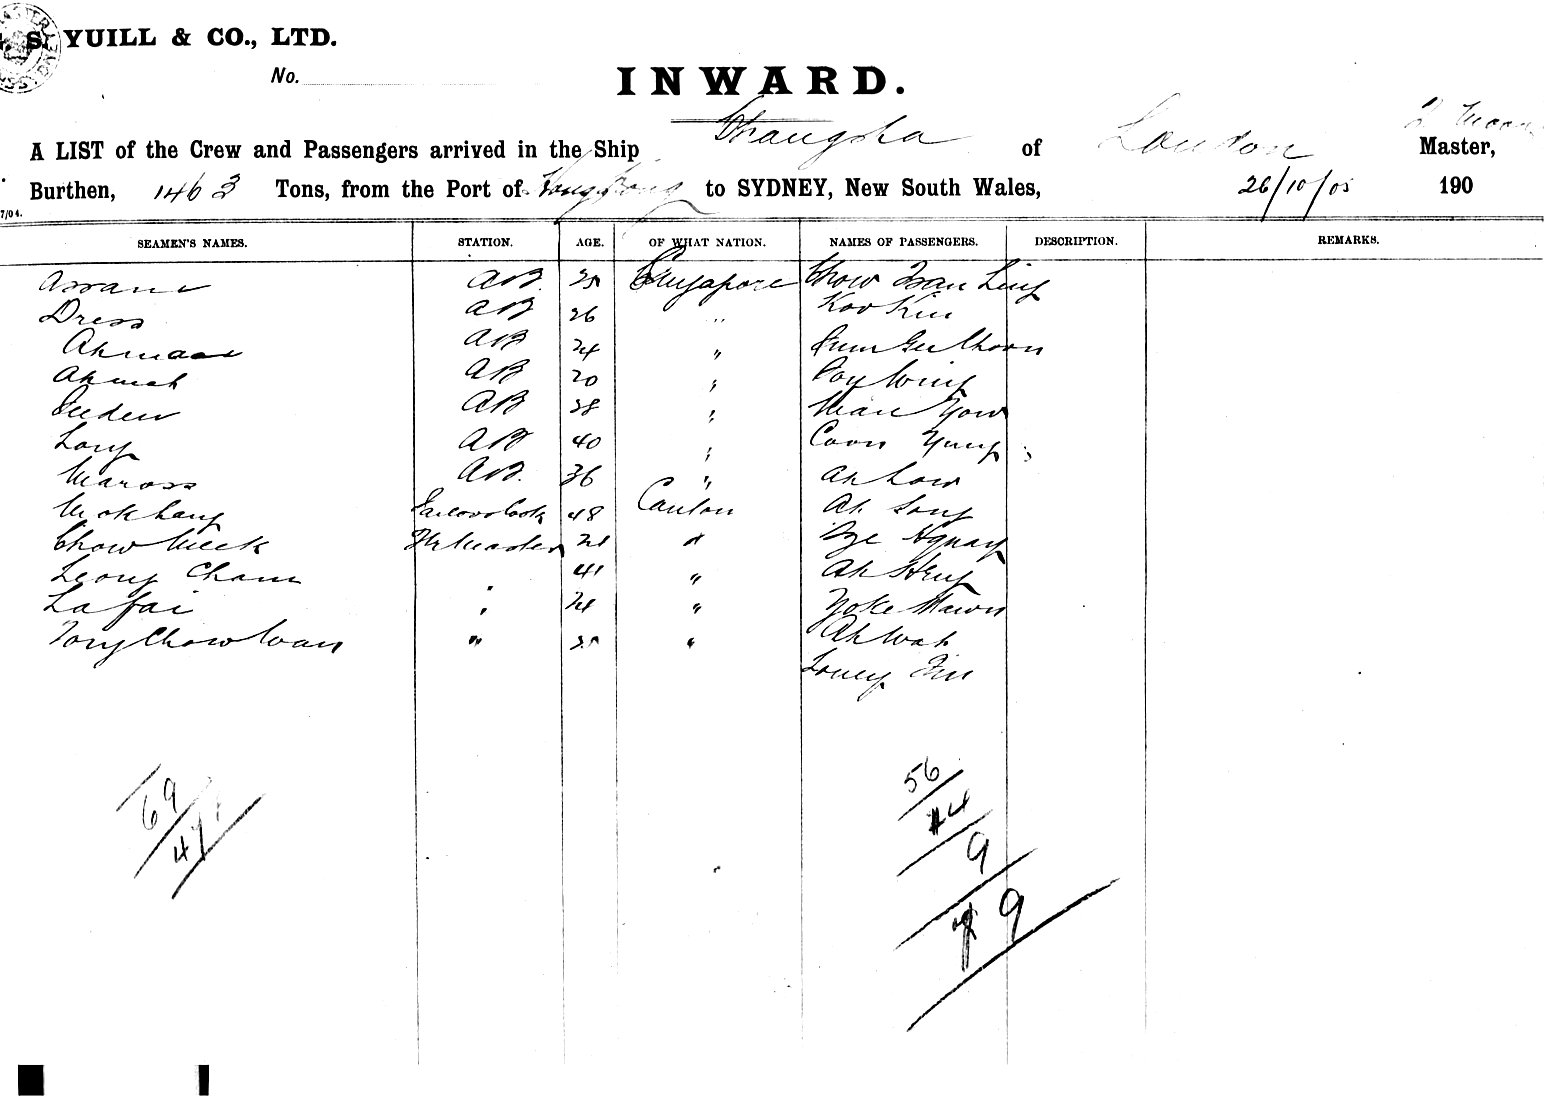 S. YUILL & CO., LTD.
No.
INWARD.
A LIST of the Crew and Passengers arrived in the Ship Changsha of London Master,
Burthen, 1463 Tons, from the Port of Hong Kong to SYDNEY, New South Wales, 26/10/05 190
7/04.
SEAMEN'S NAMES. STATION. AGE. OF WHAT NATION. NAMES OF PASSENGERS. DESCRIPTION. REMARKS.
AB. 25 Singapore Chow Tsan Ling
Dress AB 26 " Koo Kin
AB 24 "
Ahmah AB 20 " Poy Wing
AB 28 " Man Yow
Long AB 40 " Coon Yung
Maross AB. 36 " Ah Low
Mok Lang Sailors Cook 48 Canton Ah Song
Chow Meek 21 "
Leong Cham " 41 " Ah Heng
La fai " 21 " Yoke Mawn
Tong Chow Wan " 25 " Ah Wah
Louey Fin
69
47
56
14
9
79